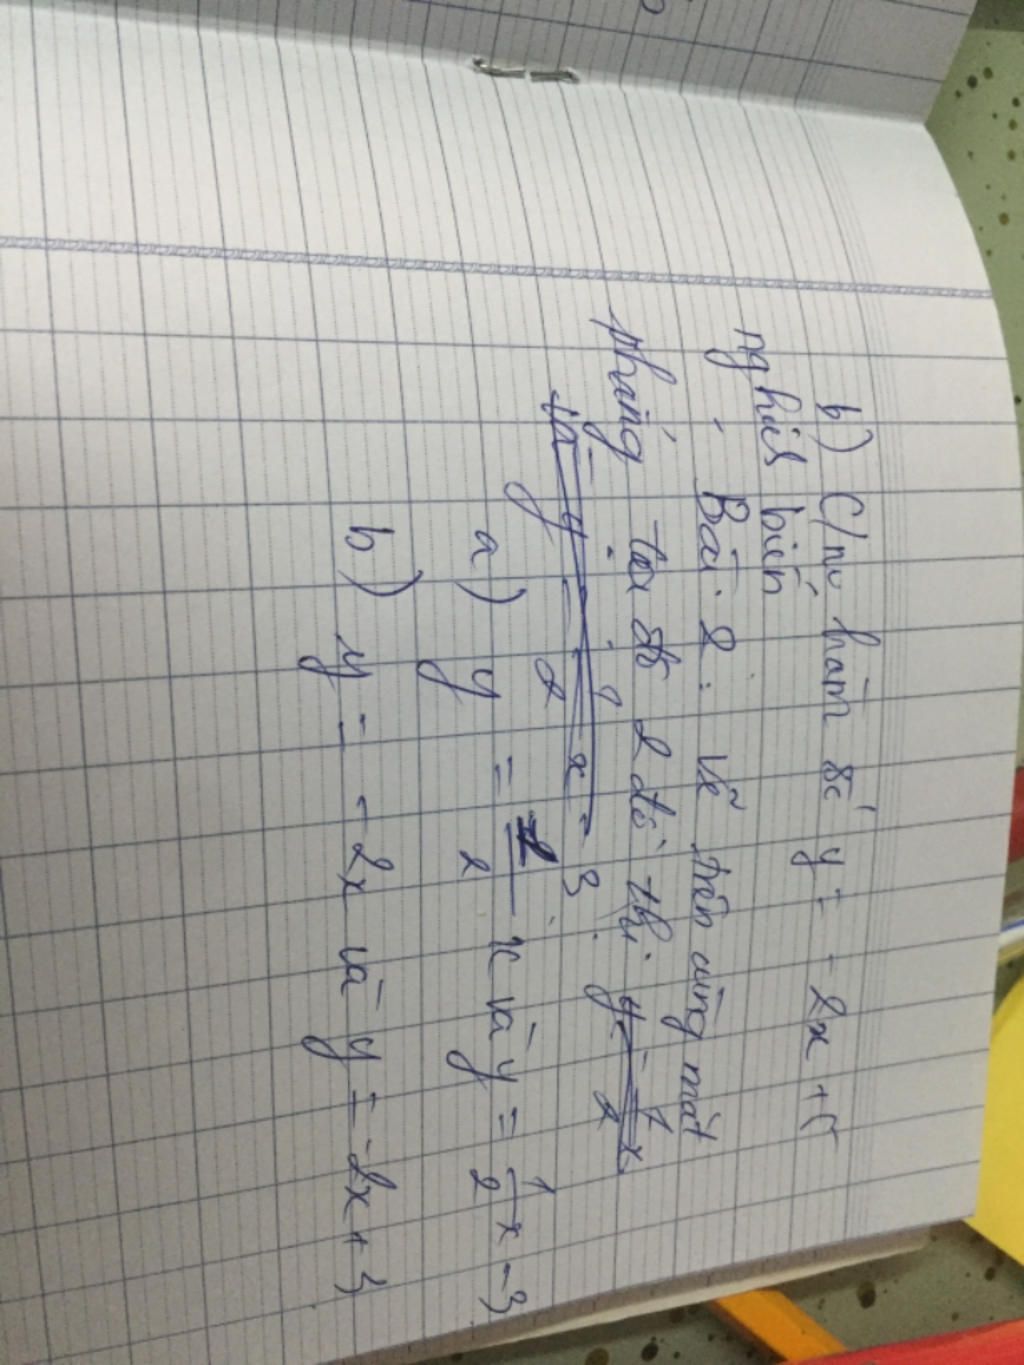 b) C/m hàm số y = -2x + 5
nghịch biến
Bài 2: Vẽ trên cùng mặt
phẳng tọa độ 2 đồ thị y = 1/2 x
và y = 1/2 x - 3
a) y = 1/2 x và y = 1/2 x - 3
b) y = -2x và y = -2x + 3